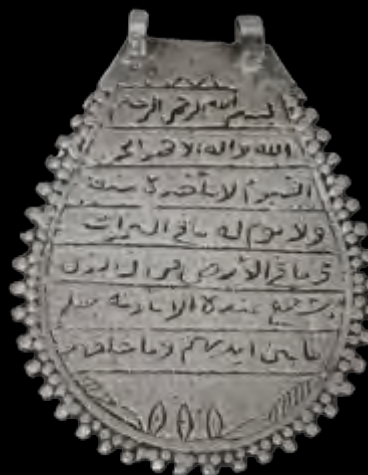 بسم الله الرحمن الرحيم
الله لا اله الا هو الحي
القيوم لا تأخذه سنة
ولا نوم له ما في السموات
وما في الأرض من ذا الذي
يشفع عنده الا باذنه يعلم
ما بين ايديهم وما خلفهم